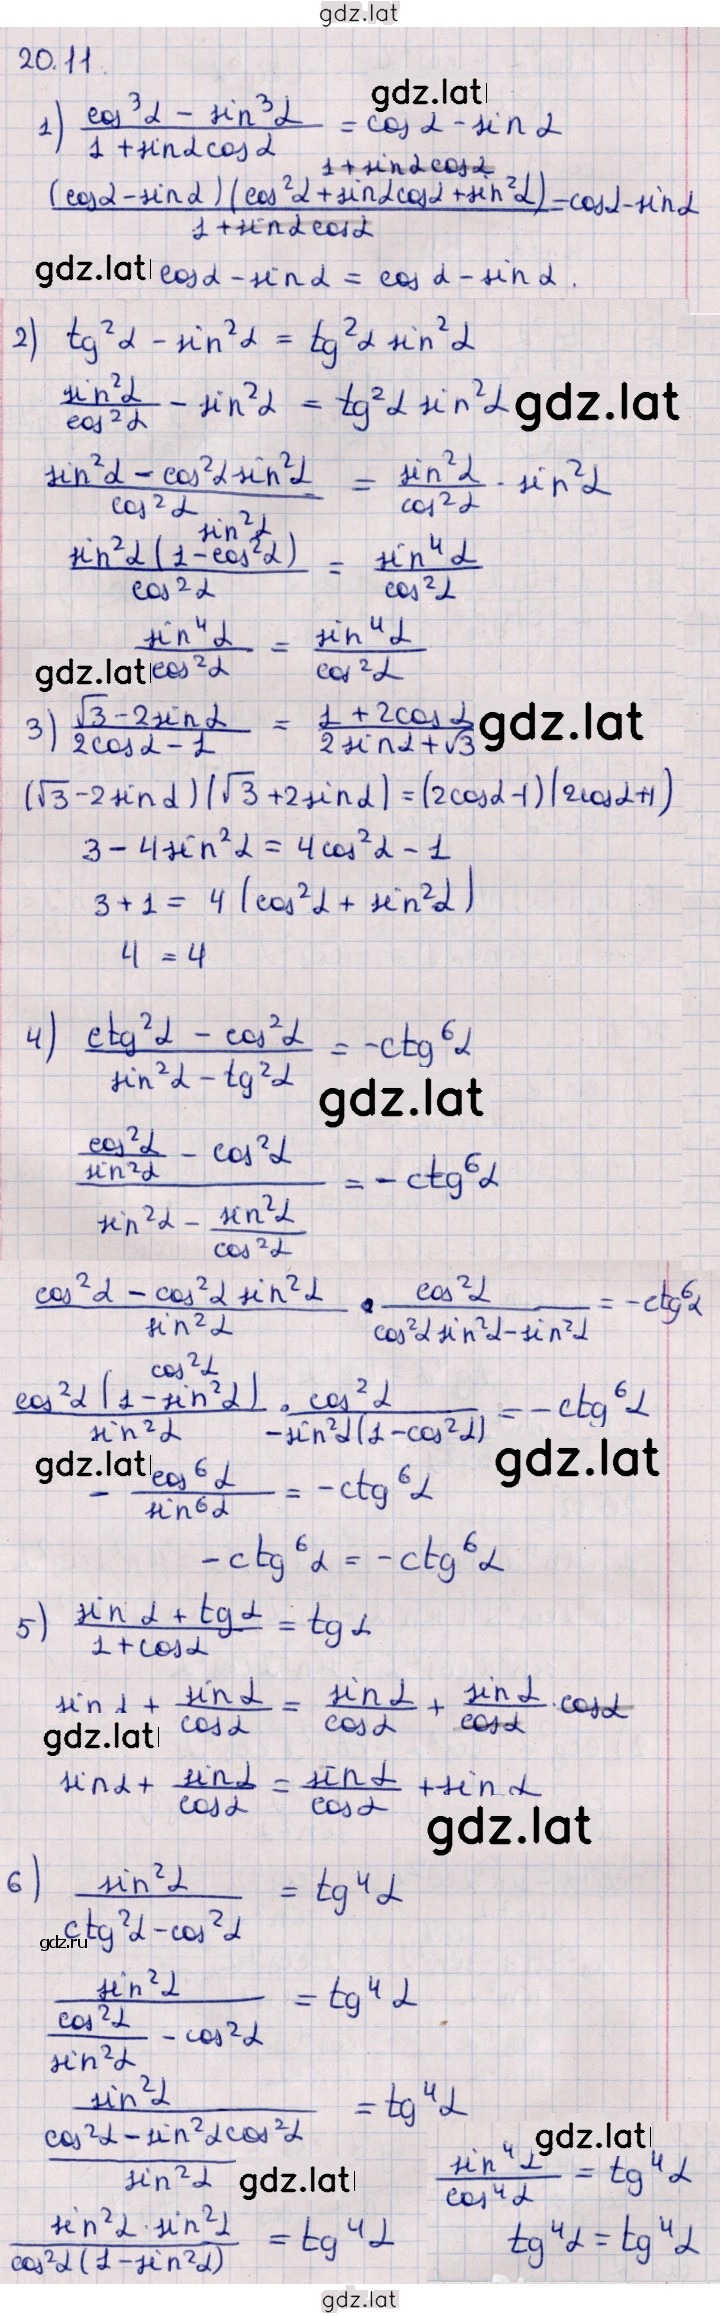 gdz.lat
20.11
gdz.lat
1) (cos³α − sin³α)/(1 + sinα cosα) = cosα − sinα
1 + sinα cosα
(cosα − sinα)(cos²α + sinα cosα + sin²α)/(1 + sinα cosα) = cosα − sinα
gdz.lat
cosα − sinα = cosα − sinα.
2) tg²α − sin²α = tg²α sin²α
sin²α/cos²α − sin²α = tg²α sin²α
gdz.lat
(sin²α − cos²α sin²α)/cos²α = sin²α/cos²α · sin²α
sin²α
sin²α(1 − cos²α)/cos²α = sin⁴α/cos²α
sin⁴α/cos²α = sin⁴α/cos²α
gdz.lat
3) (√3 − 2sinα)/(2cosα − 1) = (1 + 2cosα)/(2sinα + √3)
gdz.lat
(√3 − 2sinα)(√3 + 2sinα) = (2cosα − 1)(2cosα + 1)
3 − 4sin²α = 4cos²α − 1
3 + 1 = 4(cos²α + sin²α)
4 = 4
4) (ctg²α − cos²α)/(sin²α − tg²α) = −ctg⁶α
gdz.lat
(cos²α/sin²α − cos²α)/(sin²α − sin²α/cos²α) = −ctg⁶α
(cos²α − cos²α sin²α)/sin²α · cos²α/(cos²α sin²α − sin²α) = −ctg⁶α
cos²α
cos²α(1 − sin²α)/sin²α · cos²α/(−sin²α(1 − cos²α)) = −ctg⁶α
gdz.lat
gdz.lat
− cos⁶α/sin⁶α = −ctg⁶α
−ctg⁶α = −ctg⁶α
5) (sinα + tgα)/(1 + cosα) = tgα
sinα + sinα/cosα = sinα/cosα + sinα/cosα · cosα
gdz.lat
sinα + sinα/cosα = sinα/cosα + sinα
gdz.lat
6) sin²α/(ctg²α − cos²α) = tg⁴α
gdz.ru
sin²α/(cos²α/sin²α − cos²α) = tg⁴α
sin²α/((cos²α − sin²α cos²α)/sin²α) = tg⁴α
gdz.lat
sin²α · sin²α/(cos²α(1 − sin²α)) = tg⁴α
gdz.lat
sin⁴α/cos⁴α = tg⁴α
tg⁴α = tg⁴α
gdz.lat